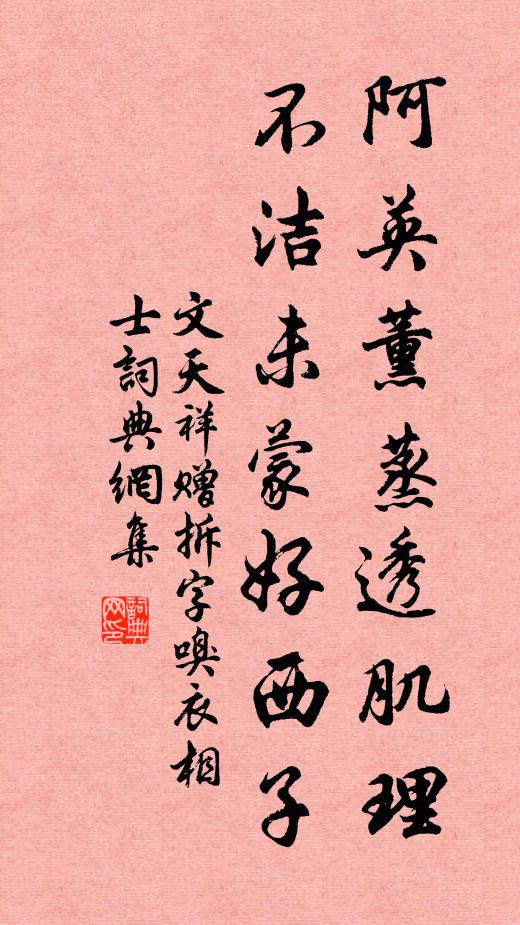 阿英薰蒸透肌理
不洁未蒙好西子
文天祥赠拆字嗅衣相
士詞典網集
詞典网印